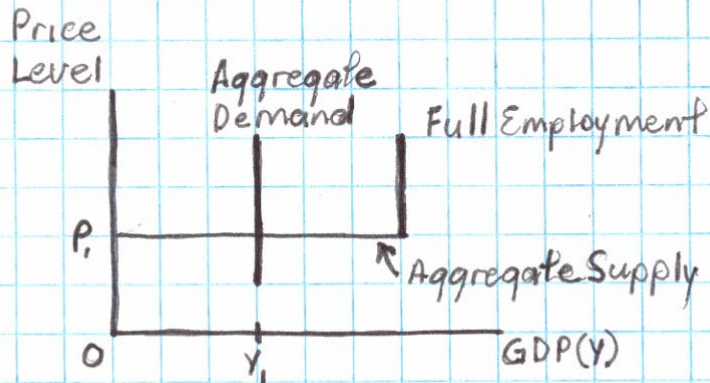 Price
Level
Aggregate
Demand
Full Employment
P₁
Aggregate Supply
O
Y₁
GDP(Y)